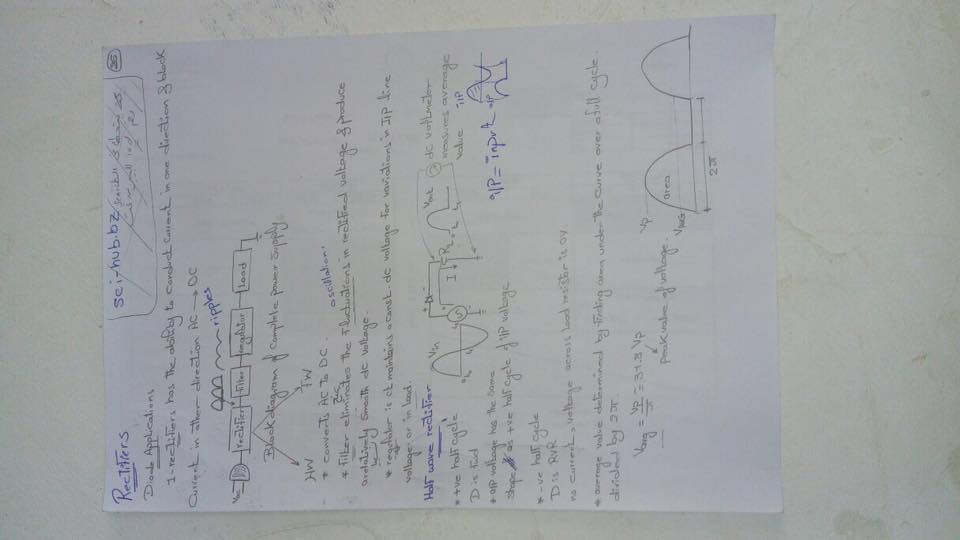 Rectifiers
sci-hub.bz
Diode Applications
1-rectifiers has the ability to conduct current in one direction & block
current in other direction AC → DC
ripples
Vac
rectifier
filter
regulator
Load
Block diagram of complete power supply
HW
FW
* converts AC to DC.
oscillation.
* filter eliminates the fluctuations in rectified voltage & produce
a relatively smooth dc voltage.
* regulator is ct maintains a const. dc voltage for variations in I/P line
voltage or in load.
Half wave rectifier
Vin
Vout
RL
I
dc voltmeter
measures average
value
* +ve half cycle
D is fwd
* o/p voltage has the same
shape as +ve half cycle of I/P voltage
I/P
o/P
i/P = input
* -ve half cycle
D is RVR
no current, voltage across load resistor is 0V.
* average value determined by finding area under the curve over a full cycle.
divided by 2π.
Vavg = Vp/π = 31.8 Vp
Peak value of voltage.
Vp
area
VAVG
2π